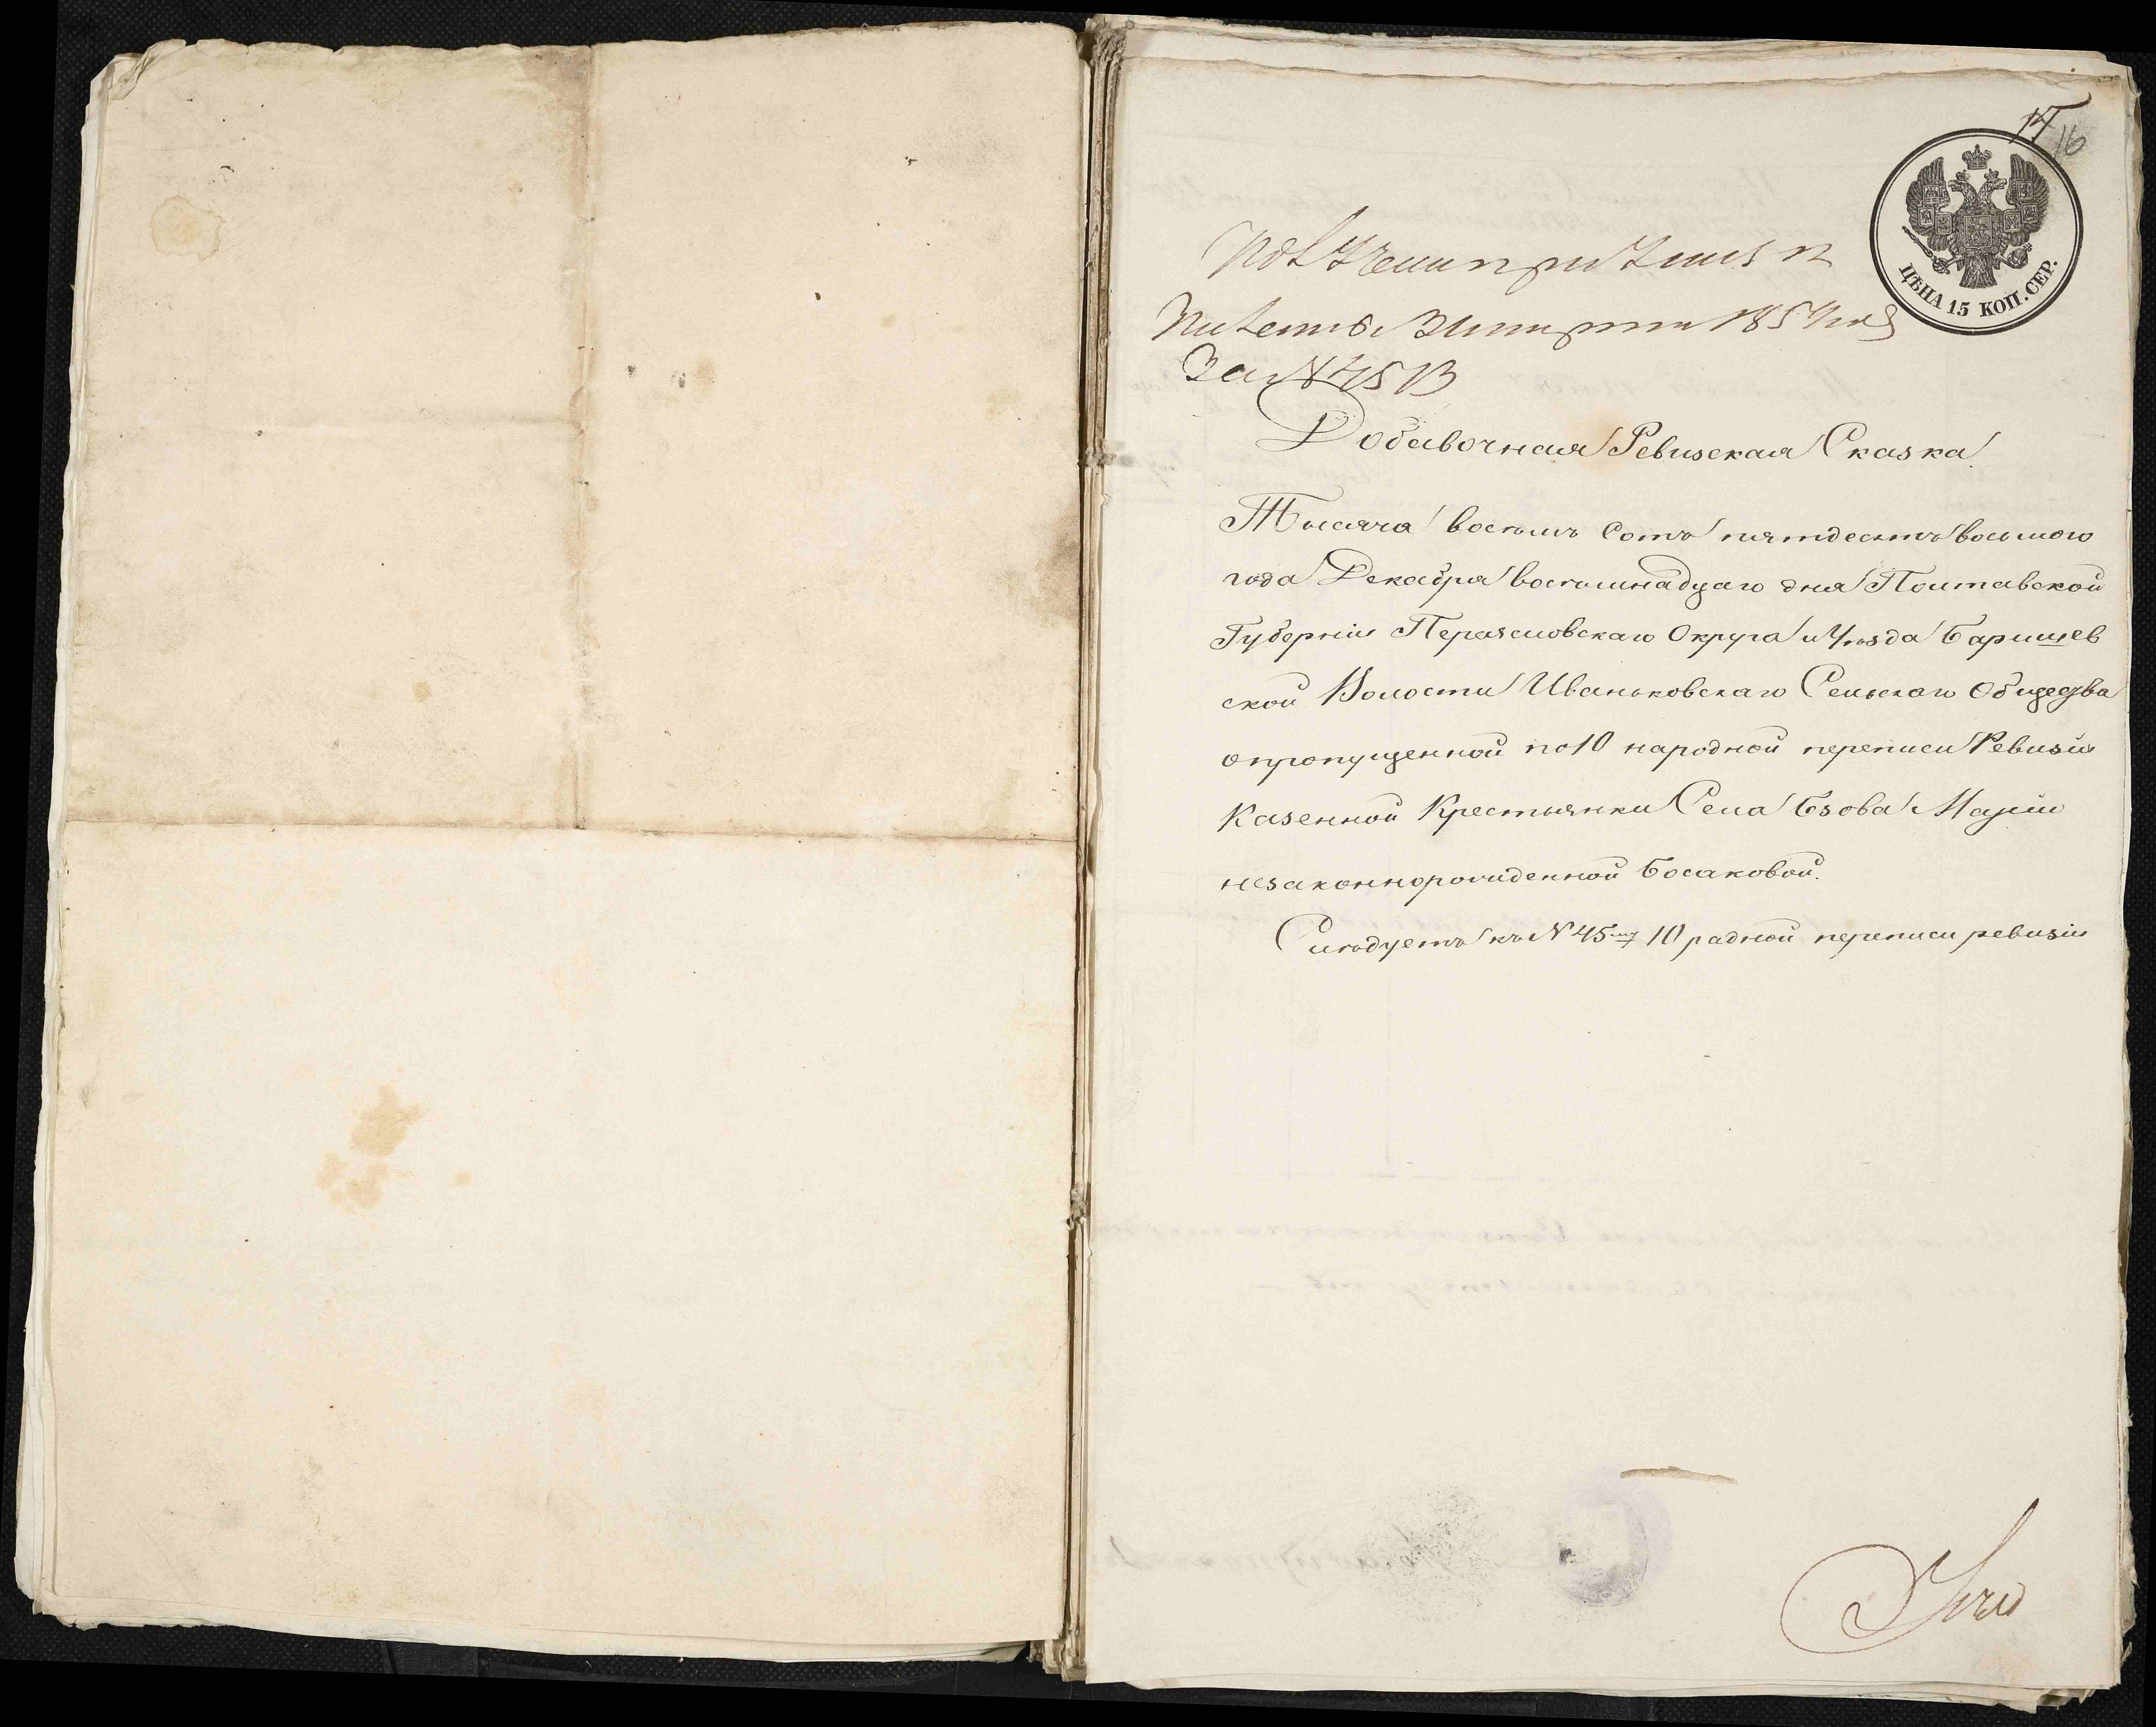 16
ЦѢНА 15 КОП. СЕР.
За № 4513
Добавочная Ревизская Сказка
Тысяча восемь сотъ пятдесятъ восьмого
года Декабря восемнадцаго дня Полтавской
Губерніи Переясловскаго Округа и Уѣзда Баришев
ской Волости Иваньковскаго Сельскаго Общества
опропущенной по 10 народной переписи Ревизіи
Казенной Крестьянки Села Бзова Маріи
незаконнорожденной Босаковой.
Слѣдуетъ къ № 45му 10 радной переписи ревизіи